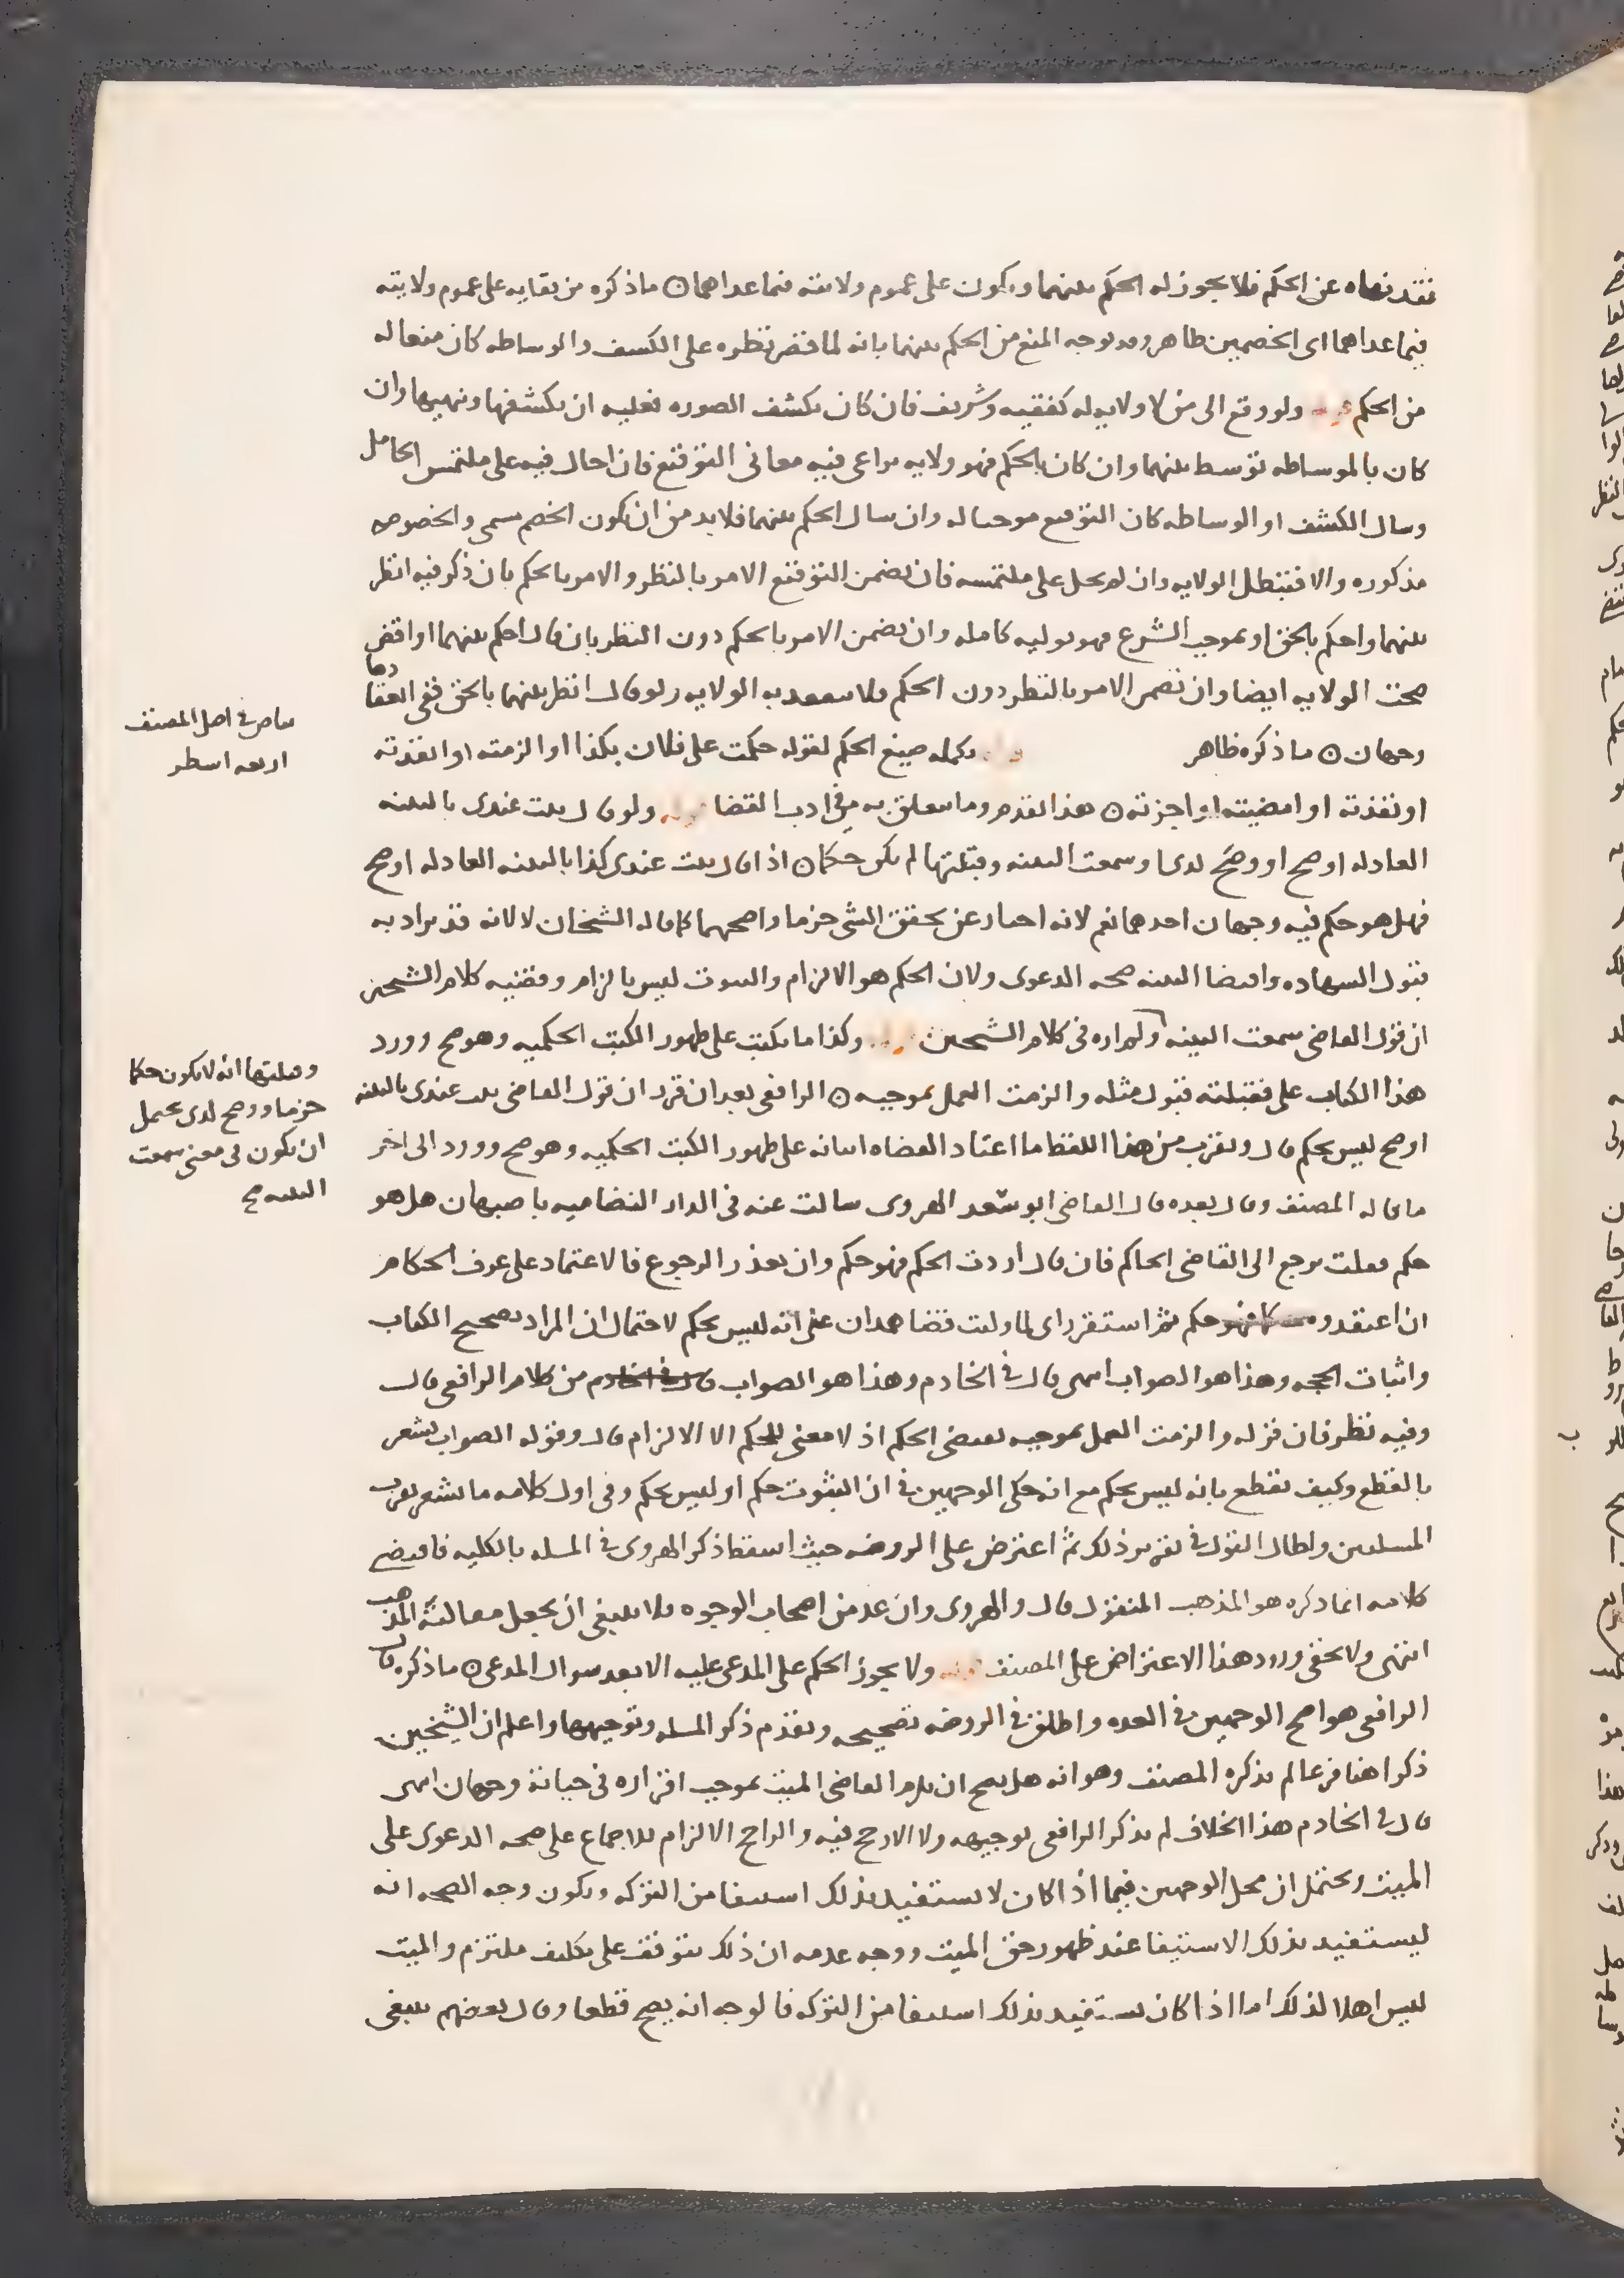 فقد نهاه عن الحكم فلا يجوز له الحكم بينهما ويكون على عموم ولايته فيما عداهما ۞ ما ذكره من بقايه على عموم ولايته
فيما عداهما اى الخصمين ظاهر وقد يوجه المنع من الحكم بينهما بانه لما قصر نظره على الكشف والوساطه كان منعا له
من الحكم قوله ولو وقع الى من لا ولايه له كفقيه وشريف فان كان بكشف الصوره فعليه ان يكشفها وينهيها وان
كان بالوساطه توسط بينهما وان كان بالحكم فهو ولايه يراعى فيه معانى التوقيع فان احال فيه على ملتمس الحامل
وسال الكشف او الوساطه كان التوقيع موجبا له وان سال الحكم بينهما فلا بد من ان يكون الخصم مسمى والخصومه
مذكوره والا فتبطل الولايه وان لم يحل على ملتمسه فان تضمن التوقيع الامر بالنظر والامر بالحكم بان ذكر فيه انظر
بينهما واحكم بالحق او بموجب الشرع فهو توليه كامله وان تضمن الامر بالحكم دون النظر بان قال احكم بينهما او اقض
صحت الولايه ايضا وان تضمن الامر بالنظر دون الحكم فلا تنعقد به الولايه ولو قال انظر بينهما بالحق ففى انعقادها
وجهان ۞ ما ذكره ظاهر قوله تكمله صيغ الحكم لقوله حكمت على فلان بكذا او الزمته او انفذته
او نفذته او امضيته او اجزته ۞ هذا تقدم وما يتعلق به فى ادب القضا قوله ولو قال ثبت عندى بالبينه
العادله او صح او وضح لدى او سمعت البينه وقبلتها لم يكن حكما ۞ اذا قال ثبت عندى كذا بالبينه العادله او صح
فهل هو حكم فيه وجهان احدهما نعم لانه اخبار عن تحقق الشى جزما واصحهما كما قاله الشيخان لا لانه قد يراد به
قبول الشهاده واقتضا البينه صحه الدعوى ولان الحكم هو الالزام والثبوت ليس بالزام وقضيه كلام الشيخين
ان قول القاضى سمعت البينه ولم اره فى كلام الشيخين قوله وكذا ما يكتب على ظهور الكتب الحكميه وهو صح وورد
هذا الكتاب على فقبلته قبول مثله والزمت العمل بموجبه ۞ الرافعى بعد ان قرر ان قول القاضى ثبت عندى بالبينه
او صح ليس بحكم قال ويقرب من هذا اللفظ ما اعتاد القضاه اثباته على ظهور الكتب الحكميه وهو صح وورد الى اخر
ما قاله المصنف وقال بعده قال القاضى ابو سعد الهروى سالت عنه فى الدار النضاميه باصبهان هل هو
حكم فقلت يرجع الى القاضى الحاكم فان قال اردت الحكم فهو حكم وان تعذر الرجوع فالاعتماد على عرف الحكام
ان اعتقدوه حكما فهو حكم ثم استقر راى لما وليت قضا همدان على انه ليس بحكم لاحتمال ان المراد تصحيح الكتاب
واثبات الحجه وهذا هو الصواب انتهى قال فى الخادم وهذا هو الصواب من كلام الرافعى قال
وفيه نظر فان قوله والزمت العمل بموجبه يقتضى الحكم اذ لا معنى للحكم الا الالزام قال وقوله الصواب يشعر
بالقطع وكيف نقطع بانه ليس بحكم مع انه حكى الوجهين فى ان الثبوت حكم او ليس بحكم وفى اول كلامه ما يشعر بقرب
المسلتين واطال القول فى تقرير ذلك ثم اعترض على الروضه حيث اسقط ذكر الهروى فى المسله بالكليه فاقتضى
كلامه انما ذكره هو المذهب المنقول قال والهروى وان عد من اصحاب الوجوه فلا ينبغى ان يجعل مقالته المذهب
انتهى ولا يخفى ورود هذا الاعتراض على المصنف قوله ولا يجوز الحكم على المدعى عليه الا بعد سوال المدعى ۞ ما ذكره قال
الرافعى هو اصح الوجهين فى العده واطلق فى الروضه تصحيحه وتقدم ذكر المسله وتوجيهها واعلم ان الشيخين
ذكرا هنا فرعا لم يذكره المصنف وهو انه هل يصح ان يلزم القاضى الميت بموجب اقراره فى حياته وجهان انتهى
قال فى الخادم هذا الخلاف لم يذكر الرافعى توجيهه ولا الارجح فيه والراجح الالزام للاجماع على صحه الدعوى على
الميت ويحتمل ان محل الوجهين فيما اذا كان لا يستفيد بذلك استيفا من التركه ويكون وجه الصحه انه
ليستفيد بذلك الاستيفا عند ظهور حق الميت ووجه عدمه ان ذلك يتوقف على تكليف ملتزم والميت
ليس اهلا لذلك اما اذا كان يستفيد بذلك استيفا من التركه فالوجه انه يصح قطعا وقال بعضهم ينبغى
بياض فى اصل المصنف
اربعه اسطر
وقبلتها انه لا يكون حكما
جزما ووضح لدى يحتمل
ان يكون فى معنى سمعت
البينه صح